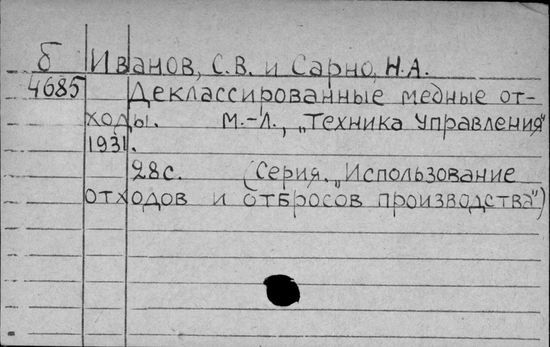 б Иванов, С.В. и Сарно, Н.А.
4685 Деклассированные медные от-
ходы. М.-Л., „Техника Управления"
1931.
28с. (Серия. „Использование
отходов и отбросов производства")